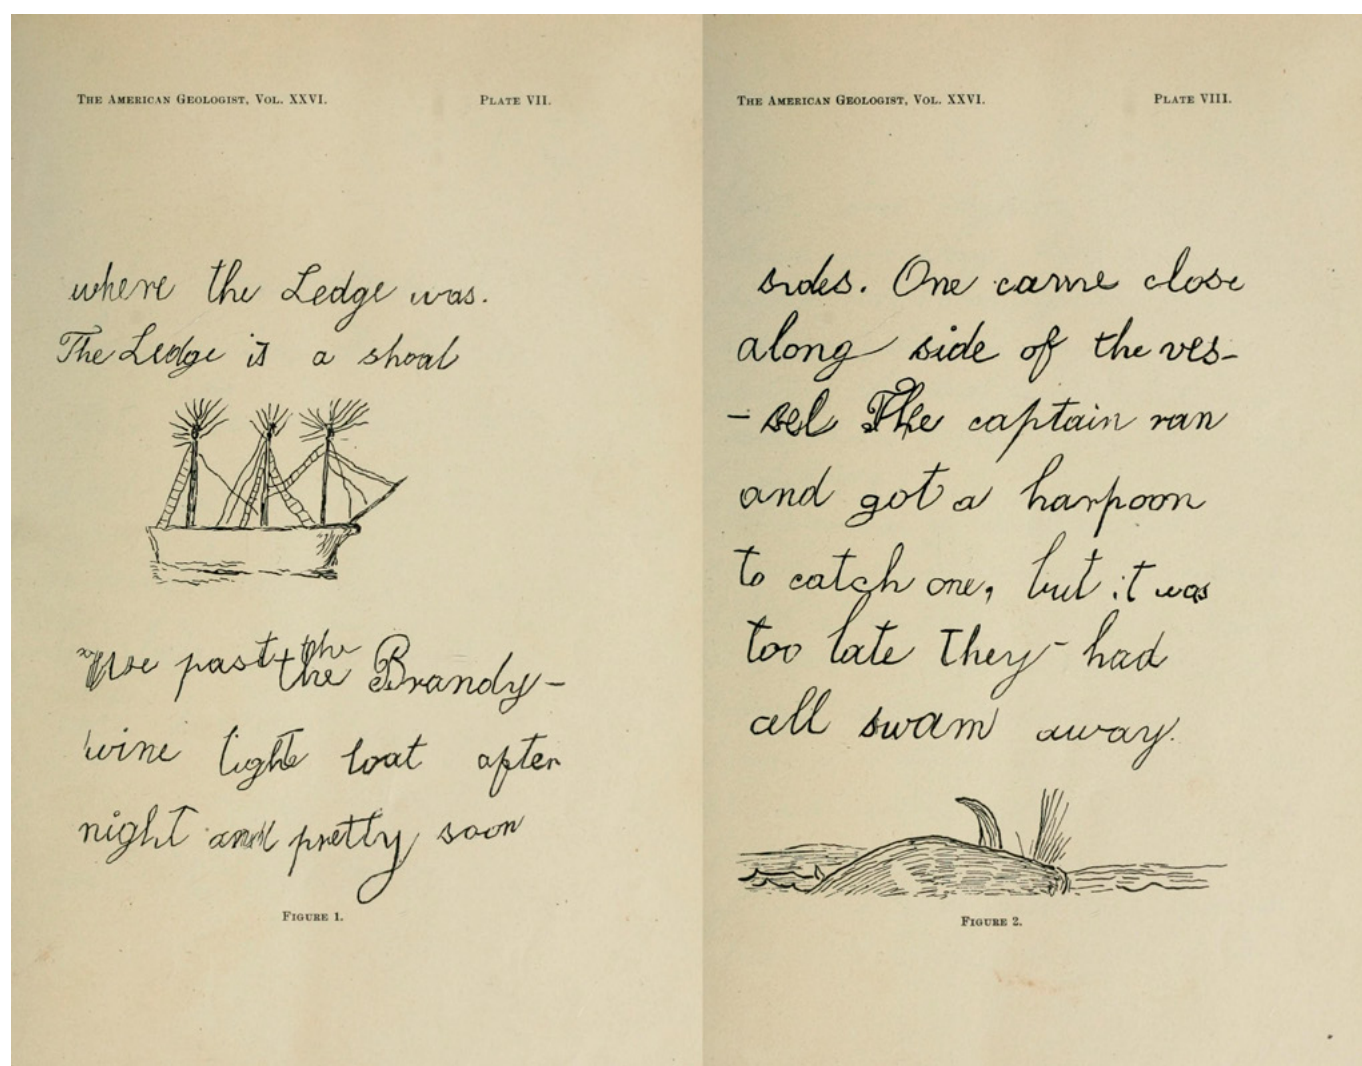 THE AMERICAN GEOLOGIST, VOL. XXVI.
PLATE VII.
where the Ledge was.
The Ledge is a shoal
We past the
the Brandy-
wine light boat after
night and pretty soon
FIGURE 1.
THE AMERICAN GEOLOGIST, VOL. XXVI.
PLATE VIII.
sides. One came close
along side of the ves-
- sel The captain ran
and got a harpoon
to catch one, but it was
too late They had
all swam away.
FIGURE 2.